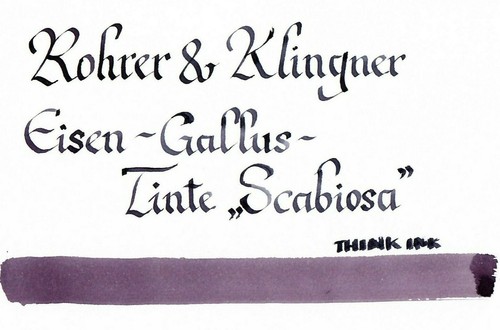 Rohrer & Klingner
Eisen-Gallus-
Tinte „Scabiosa”
THINK INK